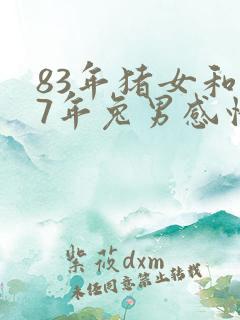 83年猪女和
7年兔男感情
紫莜dxm
未经同意禁止转载